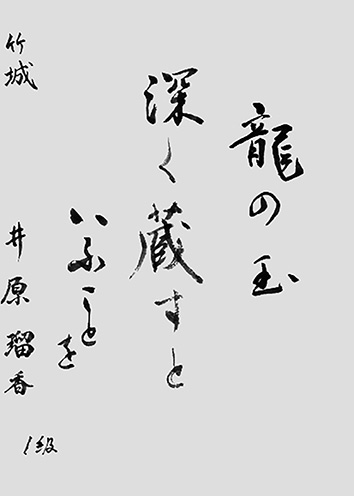 龍の玉
深く蔵すと
いふことを
竹城
井原瑠香
1級